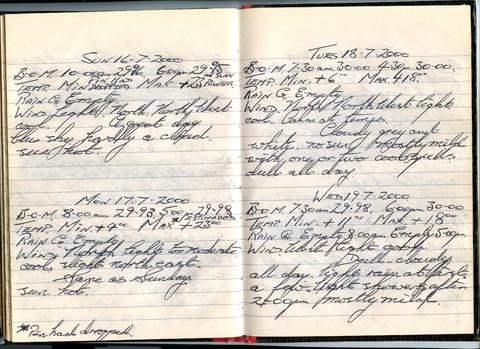 SUN 16-7-2000
B.O.M. 10-00am 29.96 6.00pm 29.95
TEMP. MIN PIN HAD DROPPED MAX +23 SUN POWER
RAIN G. Empty.
WIND Light North, North, West
cool. A great day
blue sky hardly a cloud.
sun hot.
MON 17-7-2000
B.O.M. 8-00am 29.93 5.00 29.98
TEMP. MIN +4°° MAX +23°° * ESTIMATED
RAIN G. Empty
WIND North light to moderate
cool, slight north east.
Same as Sunday.
sun hot.
*Pen had dropped.
TUES 18-7-2000
B.O.M. 7.30am 30.00 4.30pm 30.00.
TEMP. MIN. +6°° MAX. +18°°
RAIN G. Empty
WIND North North West light
cool. temps.
Cloudy grey and
white. no sun mostly mild
with one or two cool spells
dull all day.
WED 19-7-2000
B.O.M. 7.30am 29.98, 6.00pm 30.00
TEMP. MIN. +11°° MAX +18°°
RAIN G. Empty 8.00am Empty 5.00pm
WIND West light cool
Dull cloudy
all day. light rain
a few light showers after
2.40pm mostly mild.